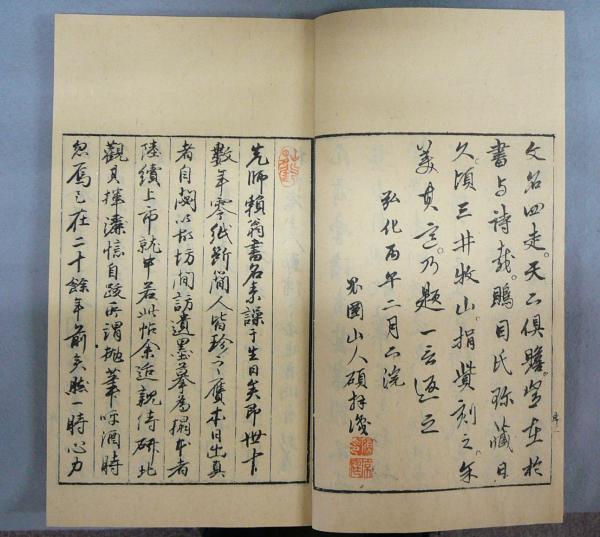 文名四走。天下俱瞻。豈在於
書与詩哉。鵬目氏珎藏日
久。頃三井牧山。捐貲刻之。余
美其意。乃題一言返之
弘化丙午二月下浣
山人碩拜
先師賴翁書名素譟于生日矣即世廿
數年零紙斷簡人皆珍之贋本日出真
者自閟以故坊間訪遺墨摹為搨本者
陸續上市就中若此帖余迨親侍研北
觀其揮灑憶自跋所謂拋筆呼酒時
忽焉已在二十餘年前矣然一時心力